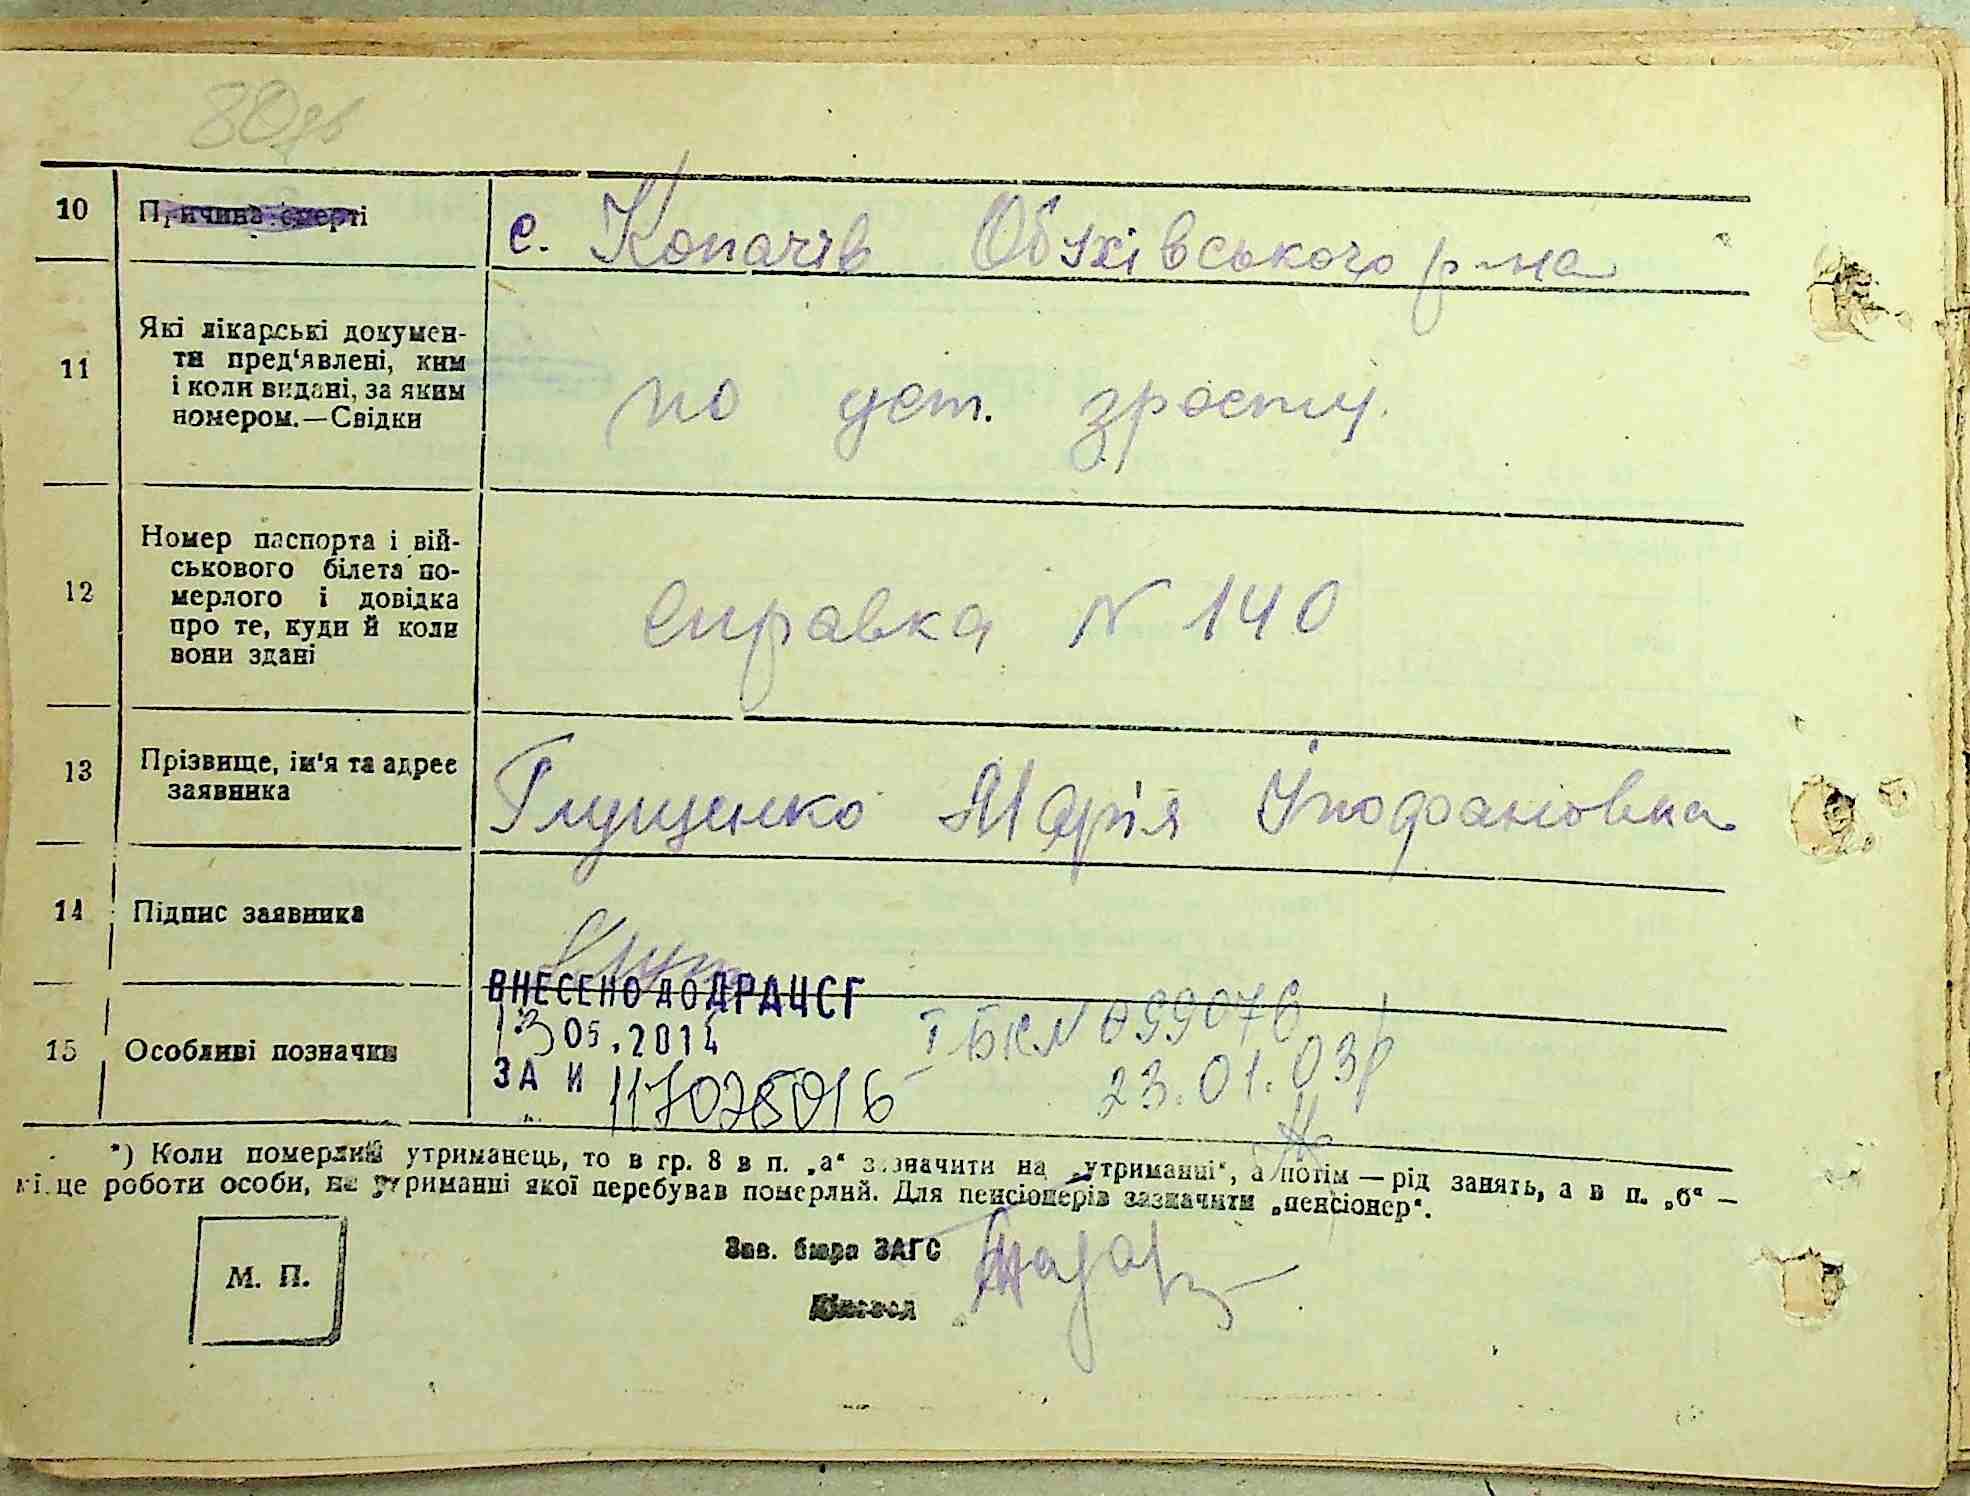 80
10 Причина смерті с. Копачів Обухівського р-на
11 Які лікарські докумен-
ти пред'явлені, ким
і коли видані, за яким
номером.—Свідки
по уст. зросту.
12 Номер паспорта і вій-
ськового білета по-
мерлого і довідка
про те, куди й коли
вони здані
справка N 140
13 Прізвище, ім'я та адрес
заявника
Глущенко Марія
14 Підпис заявника
ВНЕСЕНО ДО ДРАЦСГ
15 Особливі позначки
13 05.2014
І БК N 099076
ЗА И
23.01.03р
*) Коли померлий утриманець, то в гр. 8 в п. „а“ зазначити на „утриманні“, а потім — рід занять, а в п. „б“ —
місце роботи особи, на утриманні якої перебував померлий. Для пенсіонерів зазначити „пенсіонер“.
М. П.
Зав. бюра ЗАГС